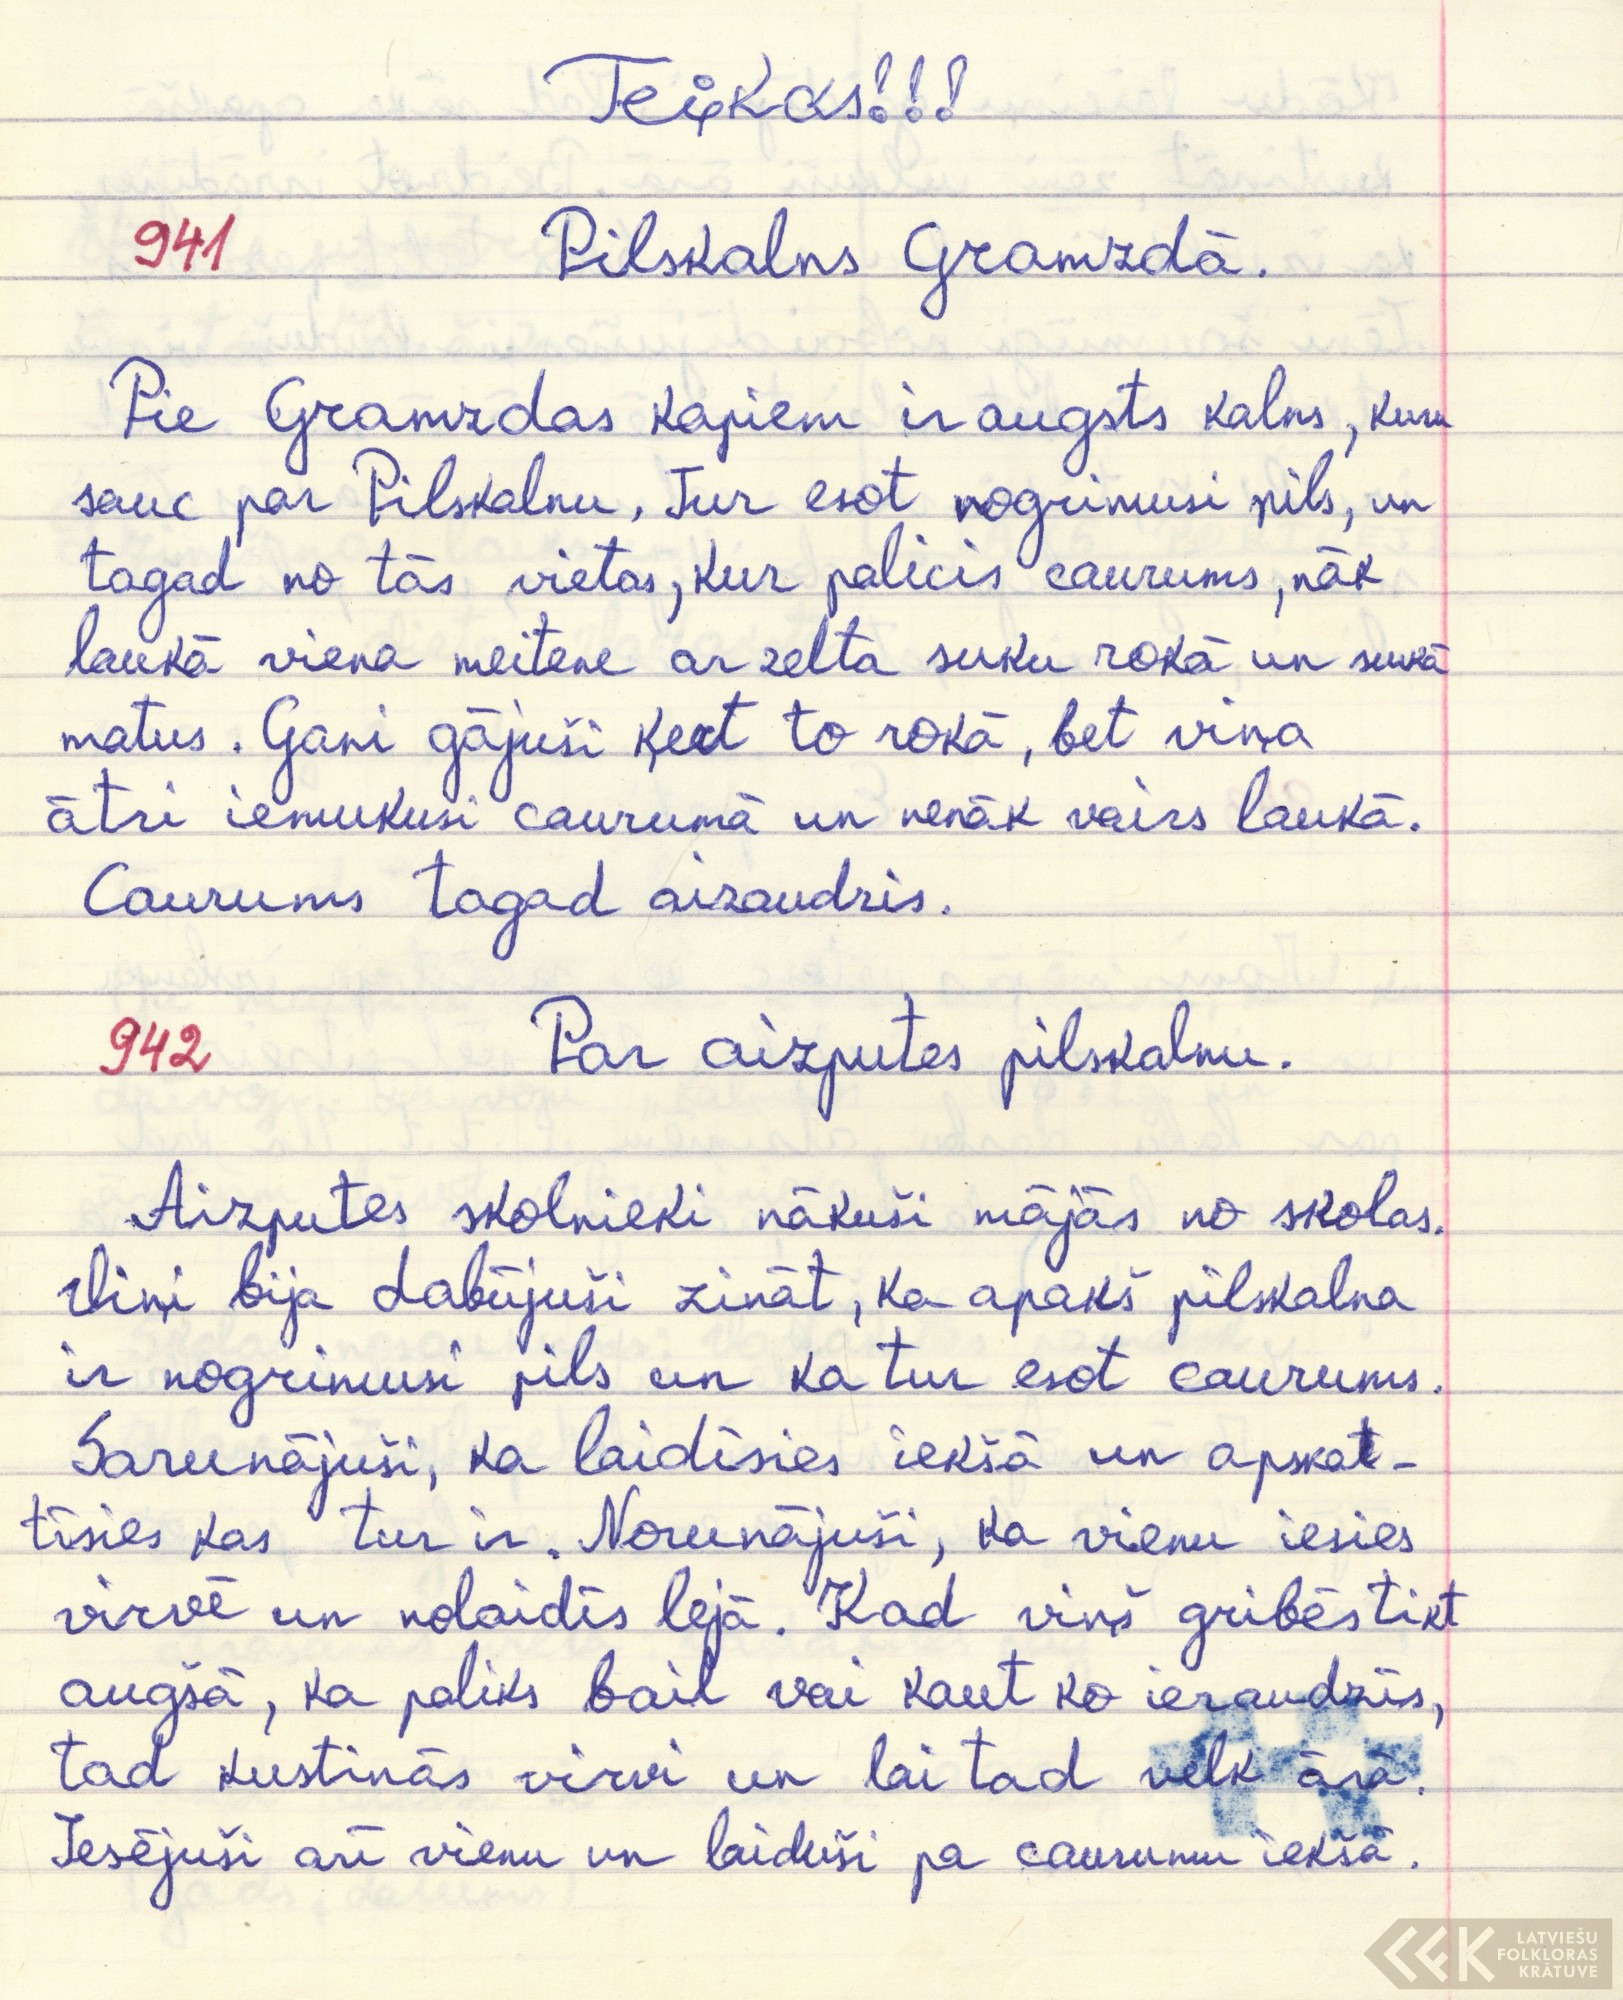 Teikas!!!
941 Pilskalns Gramzdā.
Pie Gramzdas kapiem ir augsts kalns, kuru
sauc par Pilskalnu. Tur esot nogrimusi pils, un
tagad no tās vietas, kur palicis caurums, nāk
laukā viena meitene ar zelta suku rokā un sukā
matus. Gani gājuši ķert to rokā, bet viņa
ātri iemukusi caurumā un nenāk vairs laukā.
Caurums tagad aizaudzis.
942 Par aizputes pilskalnu.
Aizputes skolnieki nākuši mājās no skolas.
Viņi bija dabūjuši zināt, ka apakš pilskalna
ir nogrimusi pils un ka tur esot caurums.
Sarunājuši, ka laidīsies iekšā un apskat-
tīsies kas tur ir. Norunājuši, ka vienu iesies
virvē un nolaidīs lejā. Kad viņš gribēs tikt
augšā, ka paliks bail vai kaut ko ieraudzīs,
tad kustinās virvi un lai tad velk ārā.
Iesējuši arī vienu un laiduši pa caurumu iekšā.
LATVIEŠU
FOLKLORAS
KRĀTUVE